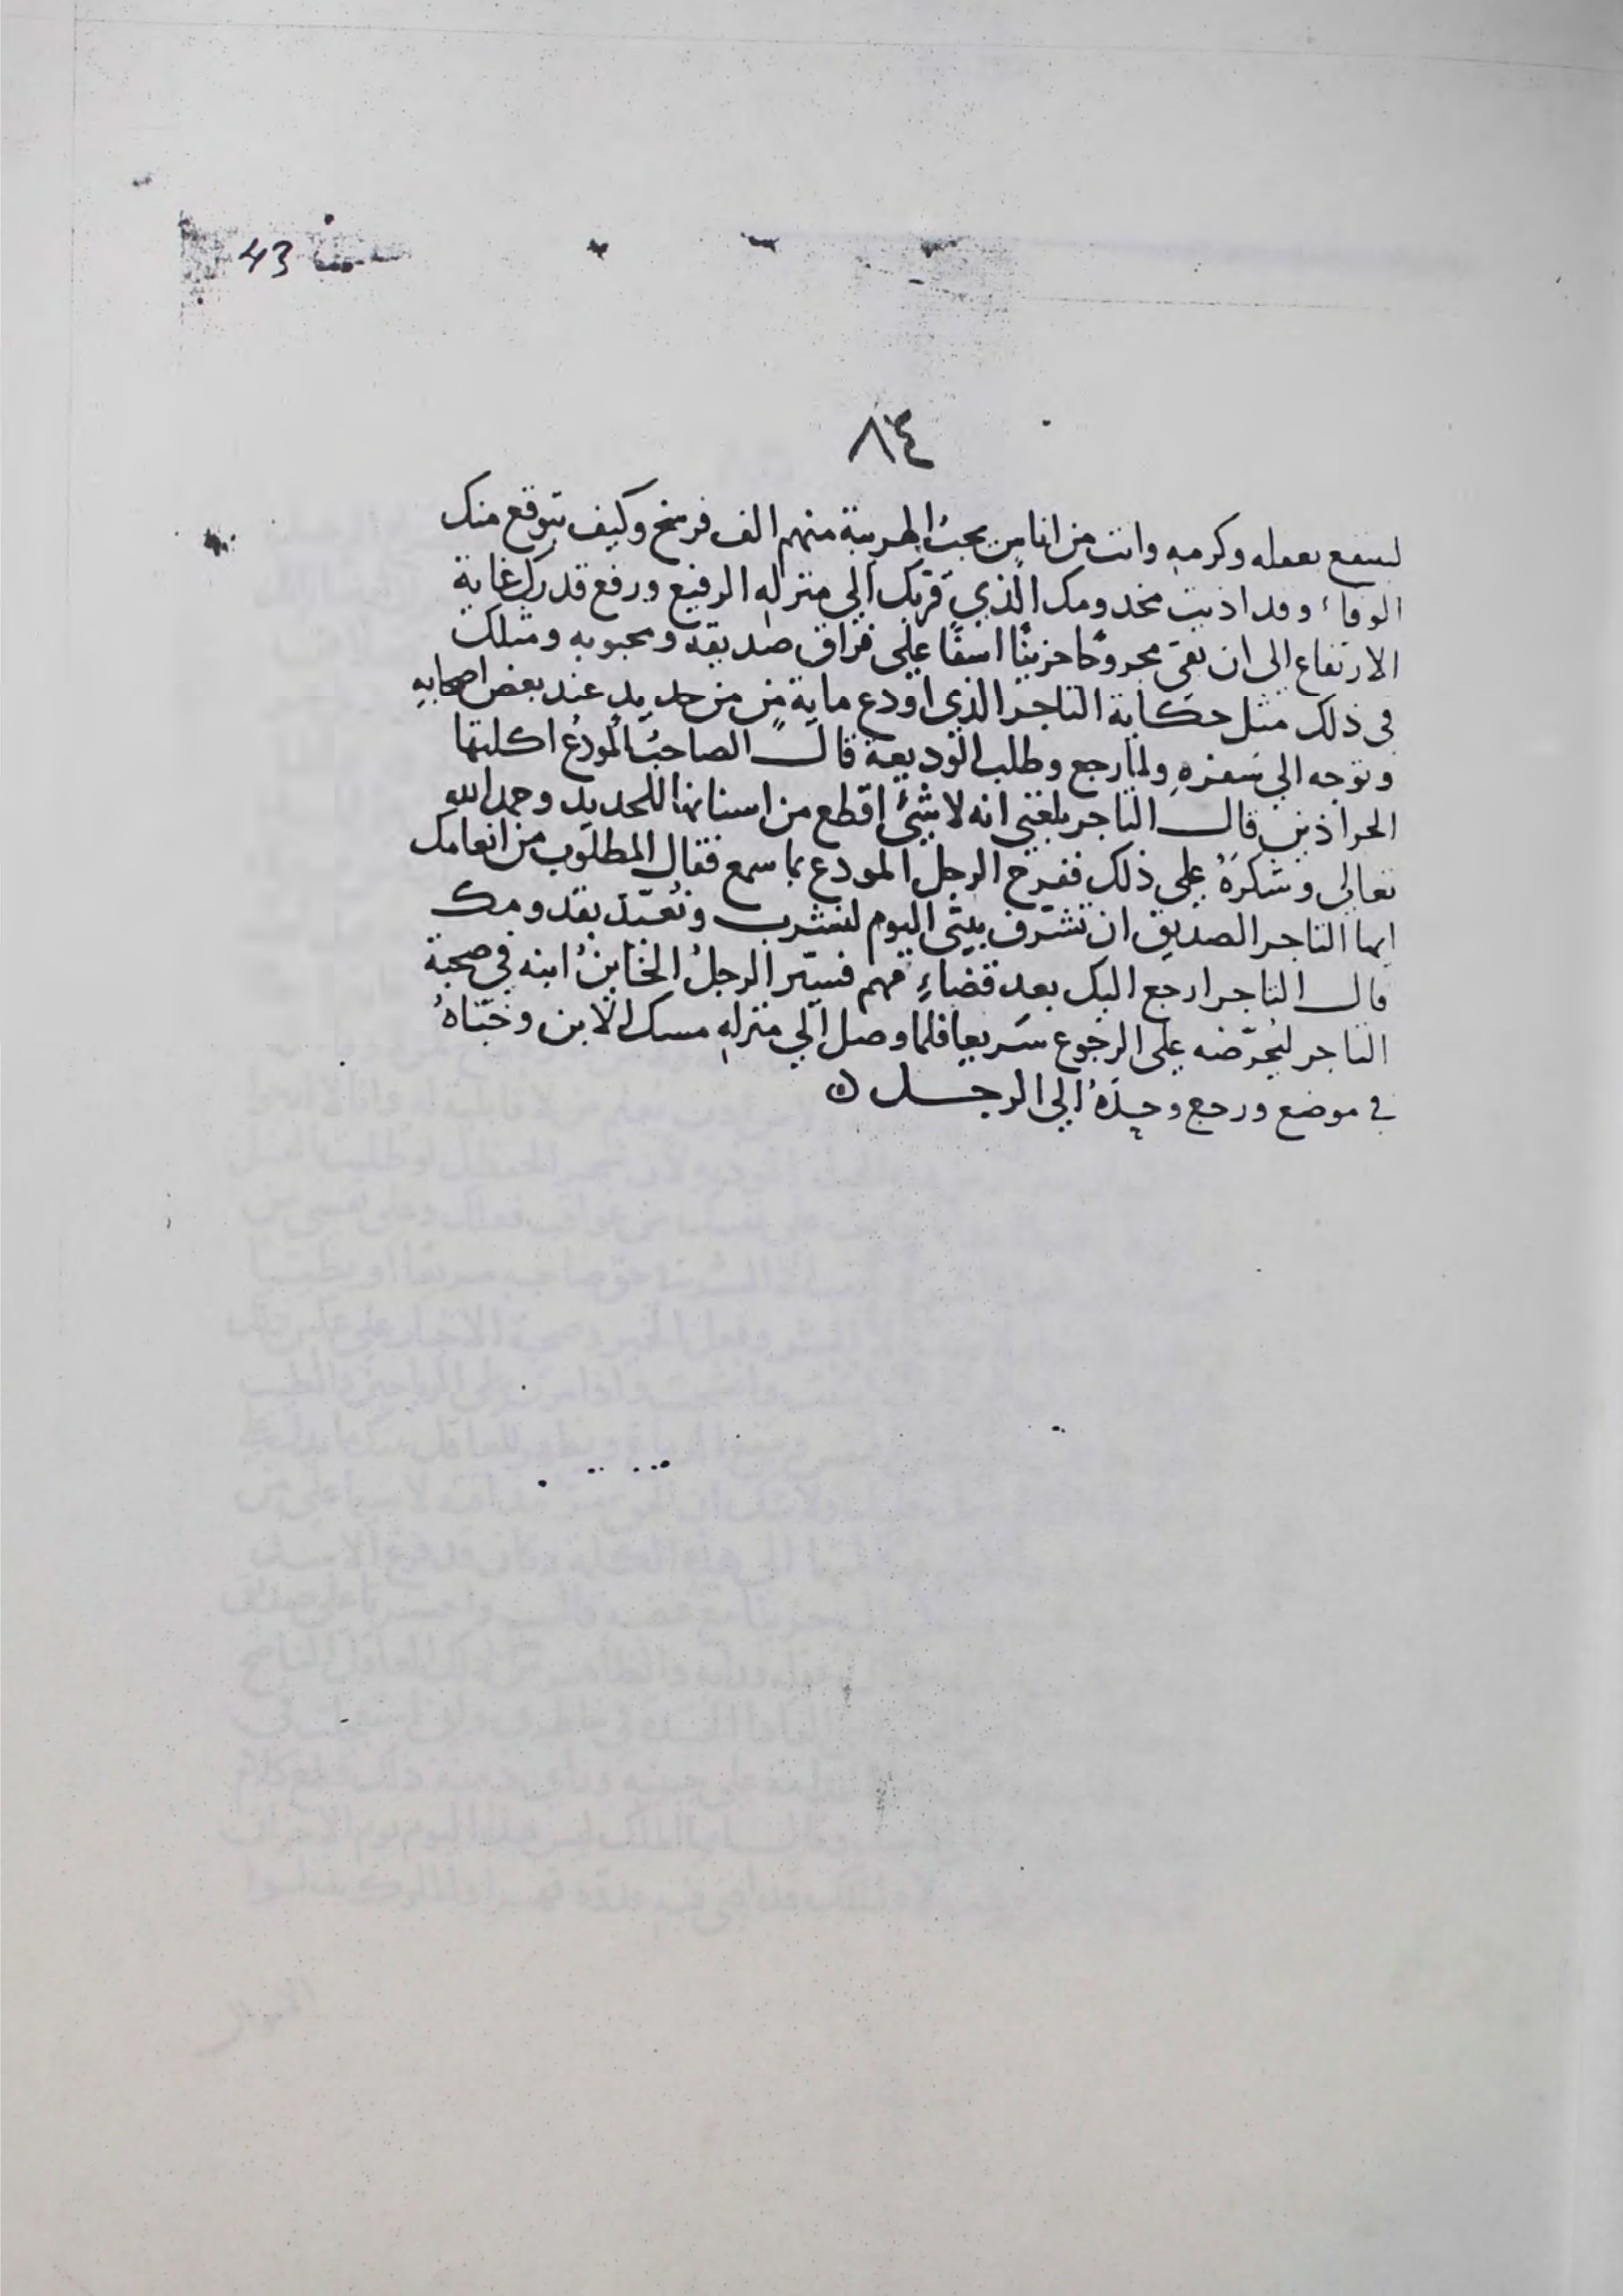 43
٨٤
لينتفع بعمله وكرمه وانت من اناس يجب الهريبة منهم الف فرسخ وكيف يتوقع منك
الوفاء وقد اذيت مخدومك الذي قربك الي منزله الرفيع ورفع قدرك غاية
الارتفاع الى ان بقي مجروحًا حزينًا اسفًا على فراق صديقه ومحبوبه ومثلك
في ذلك مثل حكاية التاجر الذي اودع ماية منٍ من حديد عند بعض اصحابه
وتوجه الي سفره ولما رجع وطلب الوديعة قال الصاحبُ المودعُ اكلتها
الجراذين قال التاجر بلغني انه لا شئ اقطع من اسنانها للحديد وحمد الله
تعالي وشكرهُ على ذلك ففرح الرجل المودع بما سمع فقال المطلوب من انعامك
ايها التاجر الصديق ان تشرّف بيتي اليوم لنشرب ونُعيّد بقدومك
قال التاجر ارجع اليك بعد قضاءِ مهم فسيّر الرجلُ الخاينُ ابنه في صحبة
التاجر ليُحرّضه على الرجوع سَريعا فلما وصل الي منزله مسك الابن وخبّاهُ
في موضع ورجع وحدَهُ الي الرجل